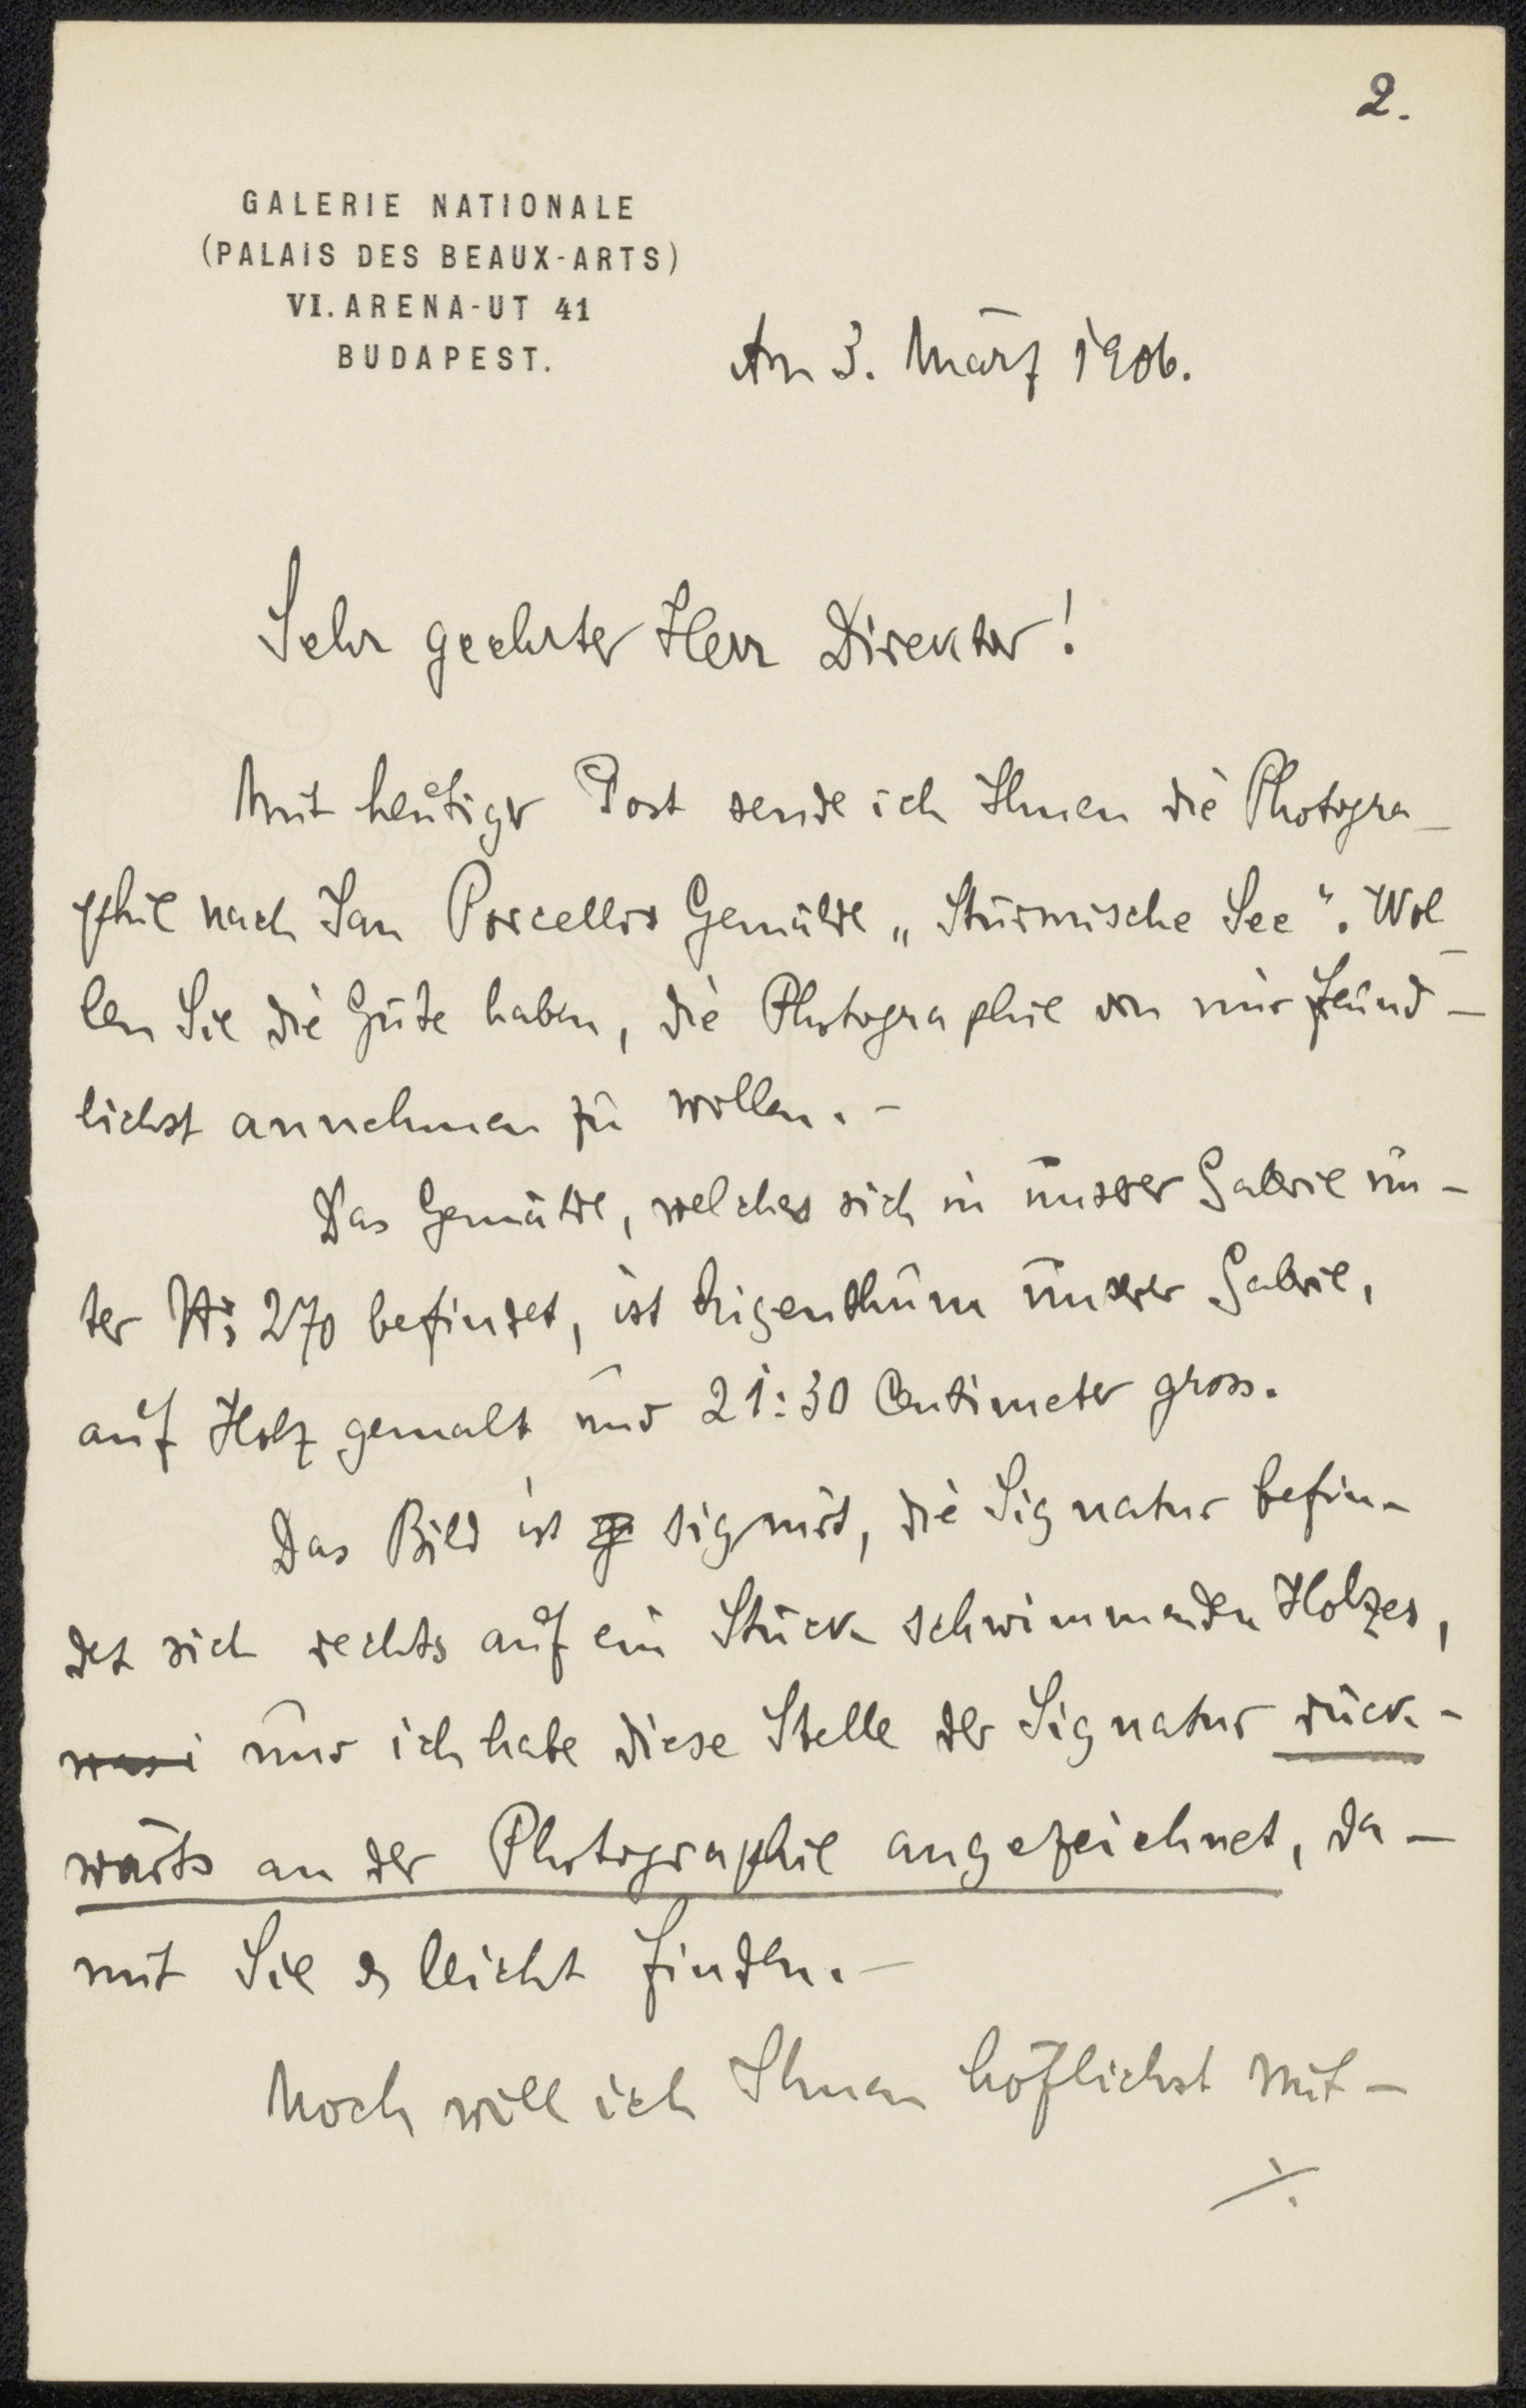 2.
GALERIE NATIONALE
(PALAIS DES BEAUX-ARTS)
VI. ARENA-UT 41
BUDAPEST.
Am 3. März 1906.
Sehr geehrter Herr Direktor!
Mit heutiger Post sende ich Ihnen die Photogra-
phie nach Jan Porcellis Gemälde „Stürmische See". Wol-
len Sie die Güte haben, die Photographie von mir freund-
lichst annehmen zu wollen. -
Das Gemälde, welches sich in unserer Galerie un-
ter No 270 befindet, ist Eigenthum unserer Galerie,
auf Holz gemalt und 21:30 Centimeter gross.
Das Bild ist signirt, die Signatur befin-
det sich rechts auf ein Stück schwimmenden Holzes,
was i und ich habe diese Stelle der Signatur rück-
wärts an der Photographie angezeichnet, da-
mit Sie es leicht finden. -
Noch will ich Ihnen höflichst mit-
./.